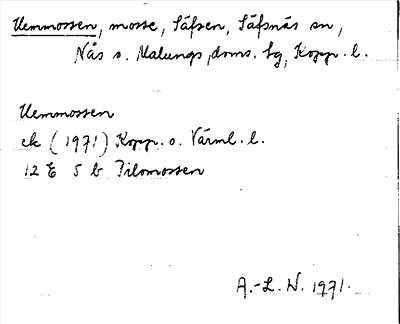 Uemmossen, mosse, Säfsen, Säfsnäs sn,
Nås o. Malungs doms. hg, Kopp. l.
Uemmossen
ek (1971) Kopp. o. Värml. l.
12 E 5 b Pilomossen
A.-L. W. 1971.